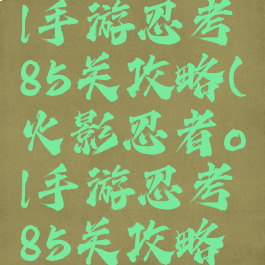 l手游忍考
85关攻略(
火影忍者o
l手游忍考
85关攻略